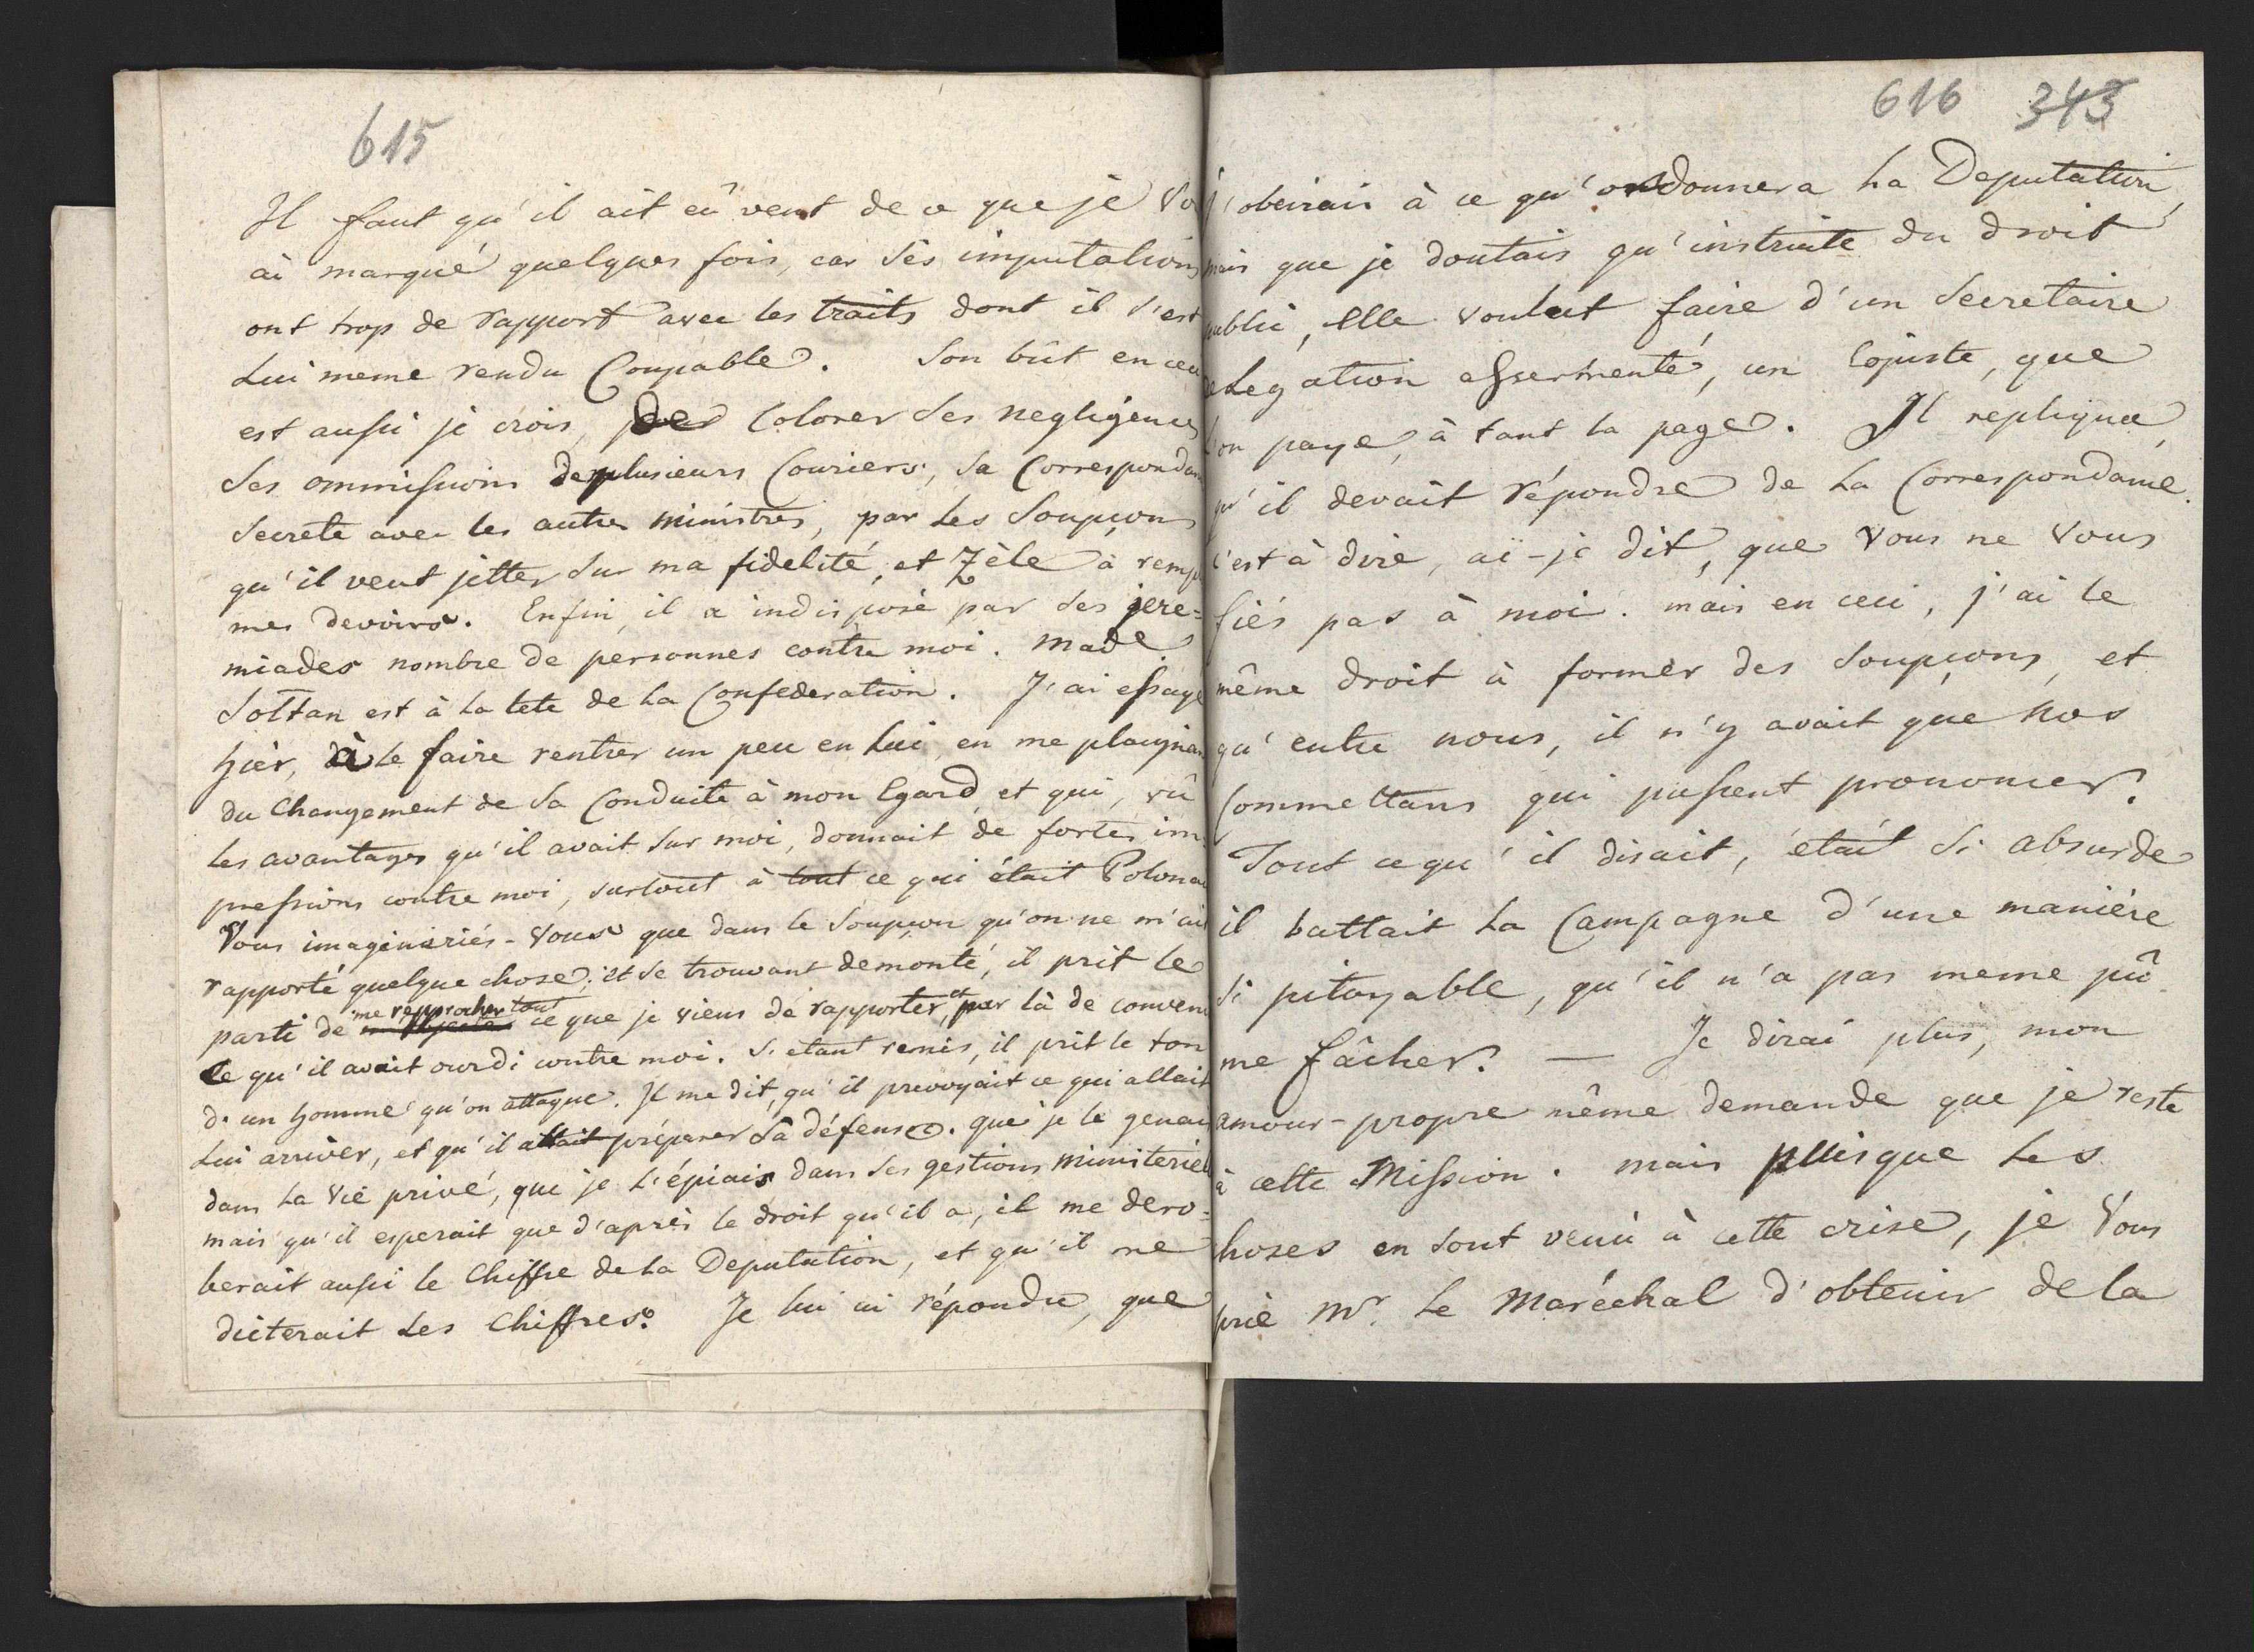 615
Il faut qu'il ait eû vent de ce que je vo
ai marqué quelques fois, car ses imputations
ont trop de rapport avec les traits dont il s'est
Lui meme rendu Coupable. Son bût en ceci
est aussi je crois, de Colorer ses negligences
ses ommissions de plusieurs Couriers, sa Correspondan
secrete avec les autres ministres, par les Soupçons
qu'il veut jetter sur ma fidelité, et Zèle à remp
mes devoirs. Enfin, il a indisposé par ses jere=
miades nombre de personnes contre moi. made
Sottan est à la tete de la Confederation. J'ai essayé
hier, à le faire rentrer un peu en Lui, en me plaignan
du Changement de sa Conduite à mon Egard, et qui, vû
les avantages qu'il avait sur moi, donnait de fortes im
pressions contre moi, surtout à tout ce qui était Polonai
Vous imagineriés-Vous que dans le Soupçon qu'on ne m'ait
rapporté quelque chose; et se trouvant demonté, il prit le
parti de me reprocher tout ce que je viens de rapporter, et par là de conven
ce qu'il avait ourdi contre moi. S'etant remis, il prit le ton
d'un homme qu'on attaque. Il me dit, qu'il prevoyait ce qui allait
Lui arriver, et qu'il allait préparer sa défense. que je le genais
dans la vie privé, que je L'épiais dans ses gestions ministeriel
mais qu'il esperait que d'après le droit qu'il a, il me dero=
berait aussi le Chiffre de la Deputation, et qu'il me
dicterait les Chiffres. Je lui ai répondu, que
616 343
j'obeirais à ce qu'ordonnera La Deputation,
mais que je doutais qu'instruite du droit
public, Elle voulut faire d'un Secretaire
de Legation assermenté, un Copiste, que
l'on paye, à tant la page. Il repliqua,
qu'il devait répondre de la Correspondance.
c'est à dire, ai-je dit, que Vous ne vous
fiés pas à moi. mais en ceci, j'ai le
même droit à former des soupçons, et
qu'entre nous, il n'y avait que nos
Commettans qui pussent prononcer.
Tout ce qu'il disait, était si absurde
il battait La Campagne d'une maniére
si pitoyable, qu'il n'a pas meme pû
me fâcher. — Je dirai plus, mon
amour-propre même demande que je reste
à cette Mission. mais puisque les
hoses en sont venu à cette crise, je Vous
prie Mr. Le Maréchal d'obtenir de la